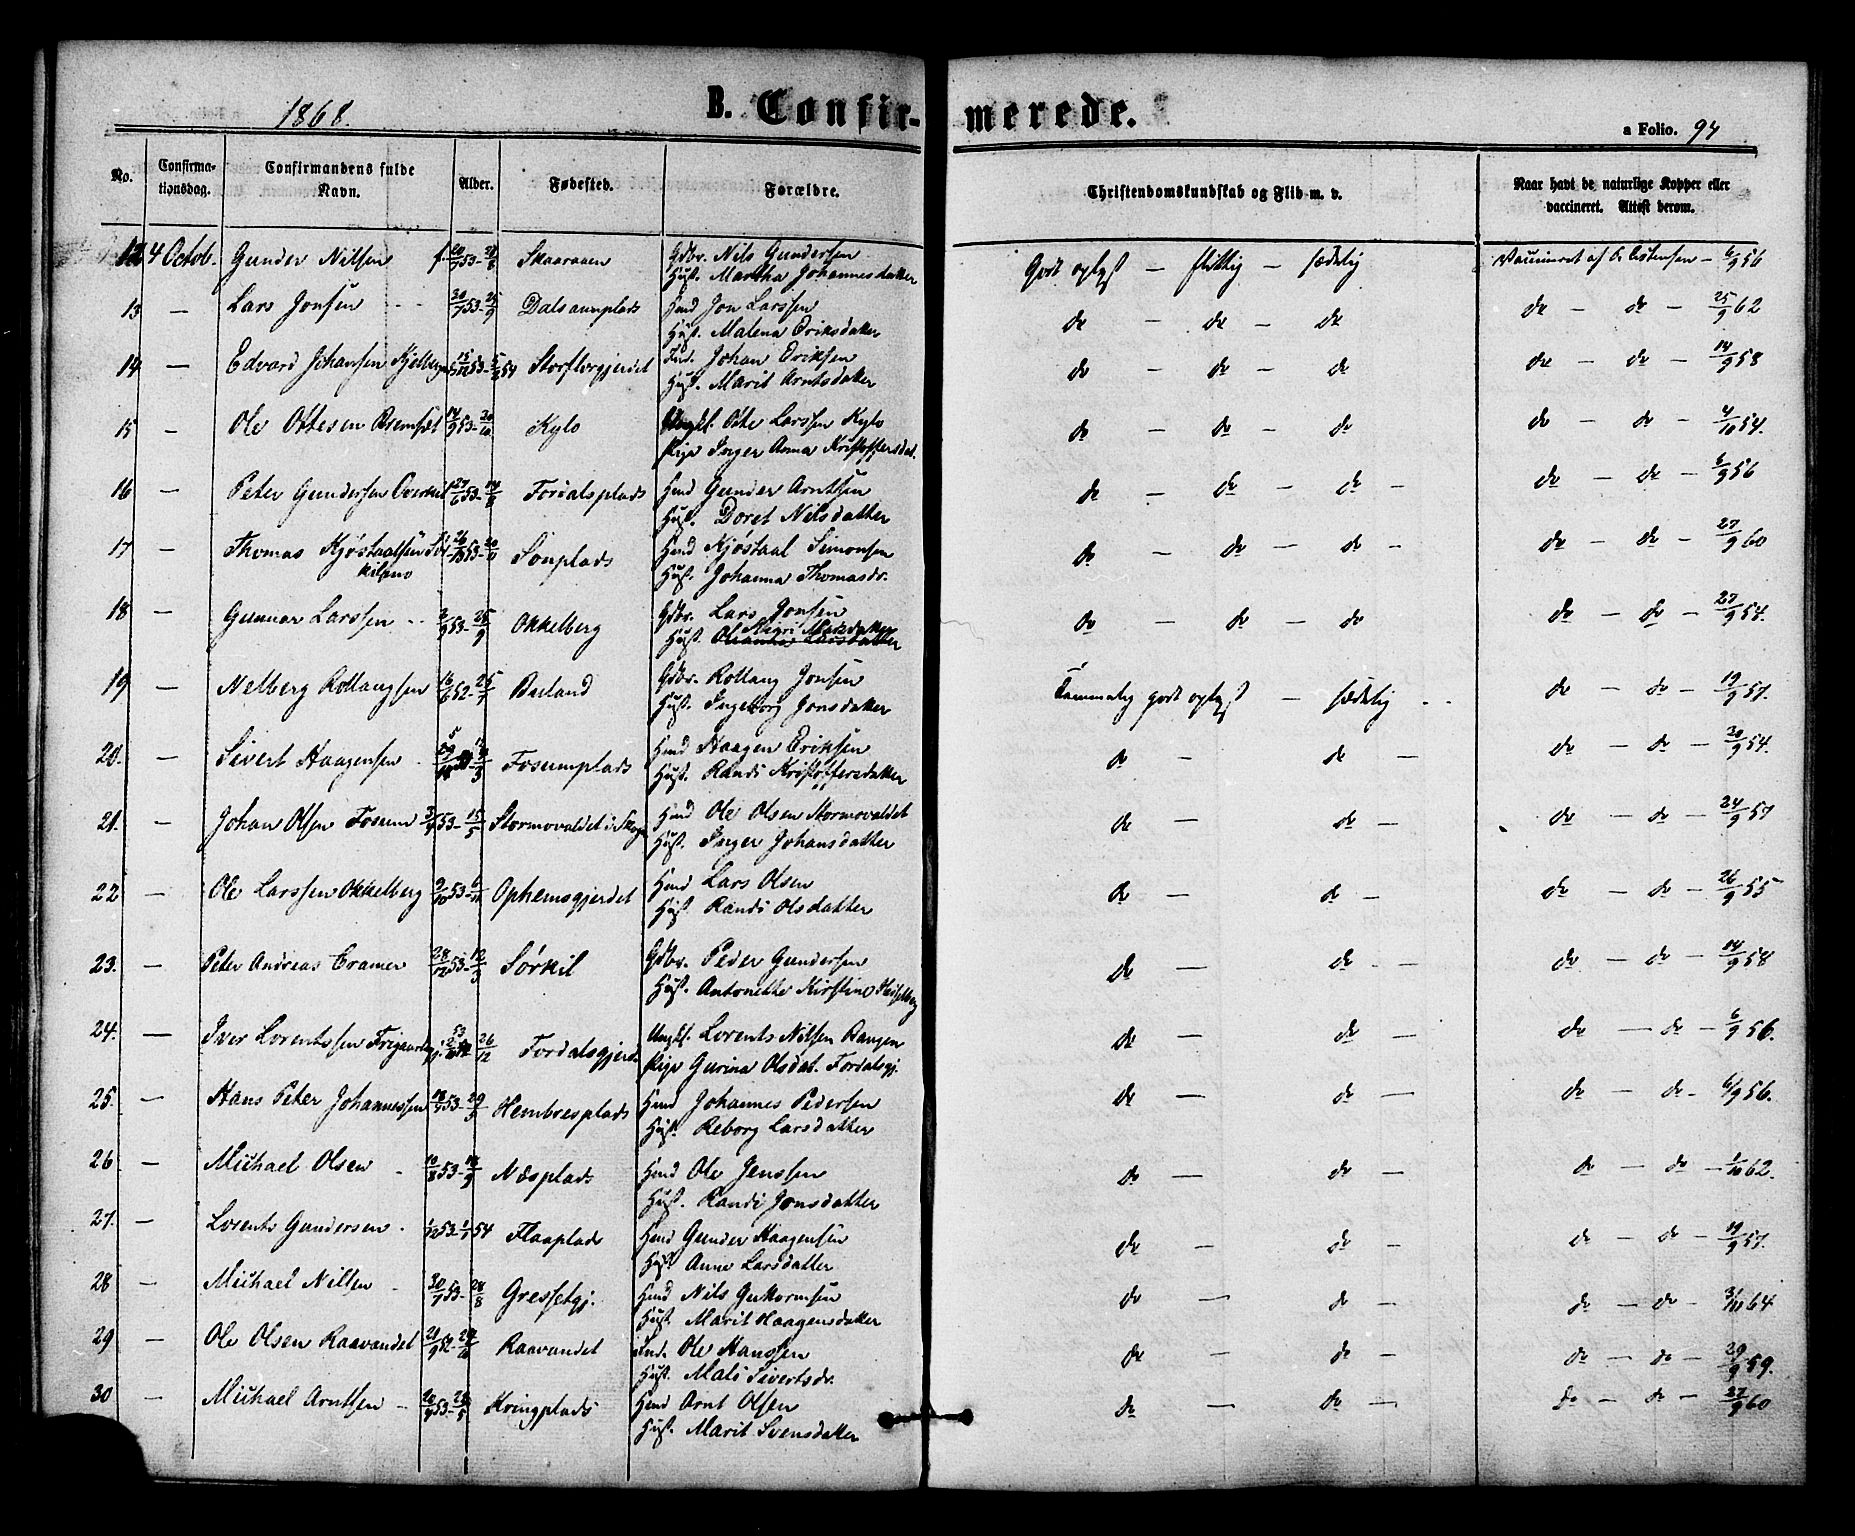 1868.
B. Confir-
merede.
a Folio. 94
No.
Confirma-
tionsdag.
Confirmandens fulde
Navn.
Alder.
Fødested.
Forældre.
Christendomskundskab og Flid m. v.
Naar havt de naturlige Kopper eller
vaccineret. Attest derom.
12 4 Octob. Gunder Nilsen f. 53 Skaaraaen Gdbr. Nils Gundersen
Hust. Martha Johannesdatter
Godt oplyst — flittig — sædelig Vaccineret af 6/9 56
13 — Lars Jonsen 30/7 53 - 25/9 Dalsaunplads Hmd Jon Larssen
Hust. Malena Eriksdatter
do — do — do do — do — 25/9 62
14 — Edvard Johansen 53 - 54 Storflorgjerdet Ind. Johan Eriksen
Hust. Marit Arntsdatter
do — do — do do — do — 14/9 58
15 — Ole Ottesen 14/9 53 - 30/10 Kylo Ungkl. Otte Larssen Kylo
Pige Inger Anna Kristoffersdat.
do — do — do do — do — 4/10 54.
16 — Peter Gundersen 27/6 53 - 14/8 Fordalsplads Hmd Gunder Arntsen
Hust. Doret Nilsdatter
do — do — do — do — do — 6/9 56
17 — Thomas Kjøstaalsen Sør-
kilsmo
53 Sonplads Hmd Kjøstaal Simonsen
Hust. Johanna Thomasdr.
do — do — do — do — do — 27/9 60
18 — Gunnar Larssen 2/9 53 - 25/9 Okkelberg Gdbr. Lars Jonsen
Hust. Larsdatter
do — do — do do — do — 27/9 54.
19 — Nelberg Rollaugsen 16/6 52 - 25/7 Buland Gdbr. Rollaug Jonsen
Hust. Ingeborg Jonsdatter
Temmelig godt oplyst — sædelig do — do — 19/9 57.
20. — Sivert Haagensen Fosumplads Hmd Haagen Eriksen
Hust. Randi Kristoffersdatter
do — do — do — do — 30/9 54.
21. — Johan Olsen Fosum 3/4 53 - 15/5 Stormovaldet i Skogn Hmd Ole Olsen Stormovaldet
Hust. Inger Johansdatter
do — do — do — do — 24/9 57
22 — Ole Larssen Okkelberg 9/10 53 - 6/11 Ophemsgjerdet Hmd Lars Olsen
Hust. Randi Olsdatter
do — do — do — do — 26/9 55
23. — Peter Andreas Cramer 28/12 53 - 12/3 Sørkil Gdbr. Peder Gundersen
Hust. Antonette Kirstine
do — do — do — do — 14/9 58
24. — Iver Lorentssen 26/12 Fordalsgjerd. Ungkl. Lorents Nilsen Vangen
Pige Gurina Olsdat. Fordalsgj.
do — do — do — do — 6/9 56.
25. — Hans Peter Johannessen 53 Hembresplads Hmd Johannes Pedersen
Hust. Reborg Larsdatter
do — do — do — do — 6/9 56.
26 — Michael Olsen 10/8 53 - 18/9 Næsplads Hmd Ole Jenssen
Hust. Randi Jonsdatter
do — do — do — do — 1/10 62.
27. — Lorents Gundersen 1/12 53 - 1/1 54 Flaaplads Hmd Gunder Haagensen
Hust. Anne Larsdatter
do — do — do — do — 19/9 57.
28 — Michael Nilsen 30/7 53 - 28/8 Gressetgj. Hmd Nils Guttormsen
Hust. Marit Haagensdatter
do — do — do — do — 3/10 64
29 — Ole Olsen Raavandet 21/9 Raavandet Ind. Ole Hanssen
Hust. Mali Sivertsdr.
do — do — do — do — 29/9 59.
30 — Michael Arntsen 53 Kringplads Hmd Arnt Olsen
Hust. Marit Svensdatter
do — do — do — do — 27/9 60